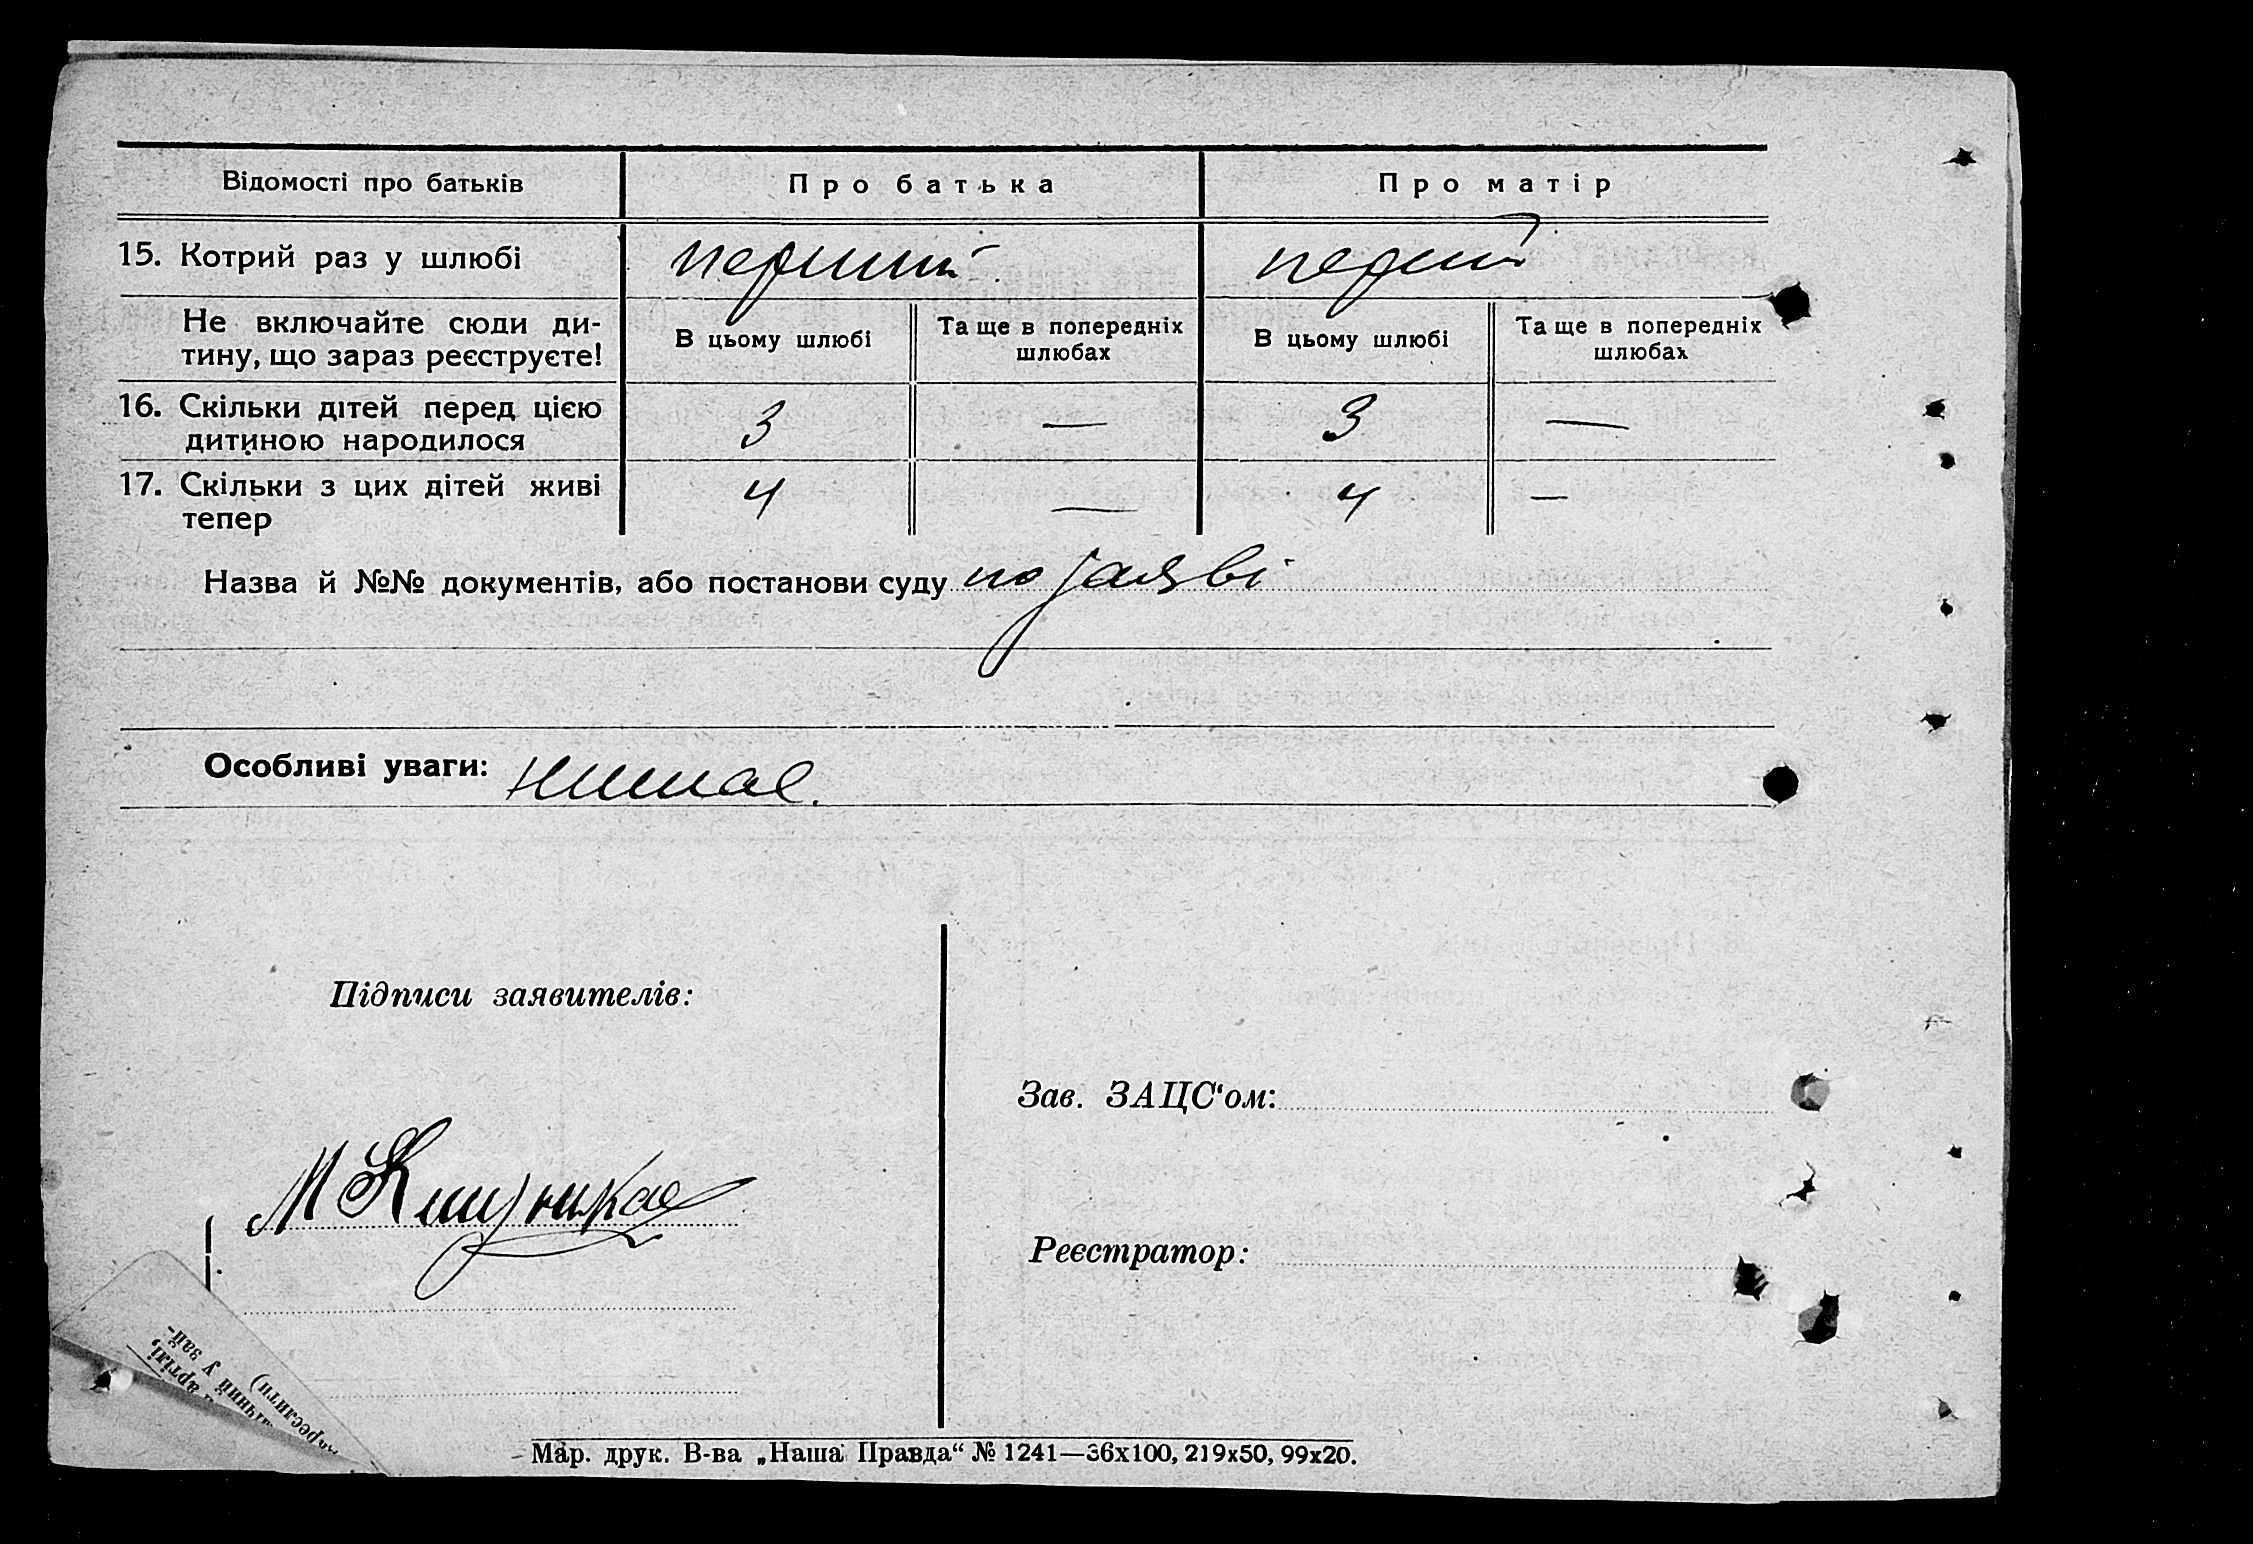 Відомості про батьків Про батька Про матір
15. Котрий раз у шлюбі перший перший
Не включайте сюди ди-
тину, що зараз реєструєте!
В цьому шлюбі Та ще в попередніх шлюбах В цьому шлюбі Та ще в попередніх шлюбах
16. Скільки дітей перед цією
дитиною народилося 3 — 3 —
17. Скільки з цих дітей живі
тепер 4 — 4 —
Назва й №№ документів, або постанови суду по заяві
Особливі уваги: нимае.
Підписи заявителів:
Зав. ЗАЦС'ом:
М
Реєстратор:
артілі,
у зай-
Мар. друк. В-ва „Наша Правда“ № 1241—36x100, 219x50, 99x20.